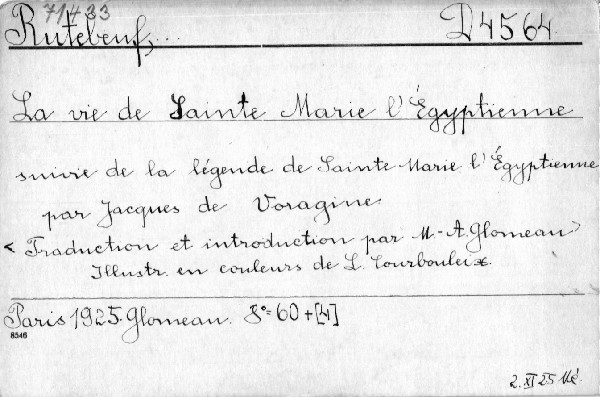 71433
Rutebeuf,... D4564
La vie de Sainte Marie l'Égyptienne
suivie de la légende de Sainte Marie l'Égyptienne
par Jacques de Voragine
< Traduction et introduction par M.-A. Glomeau >
Illustr. en couleurs de L. Courbouleix.
Paris 1925. Glomeau. 8°= 60+[4]
8546
2. XI 25